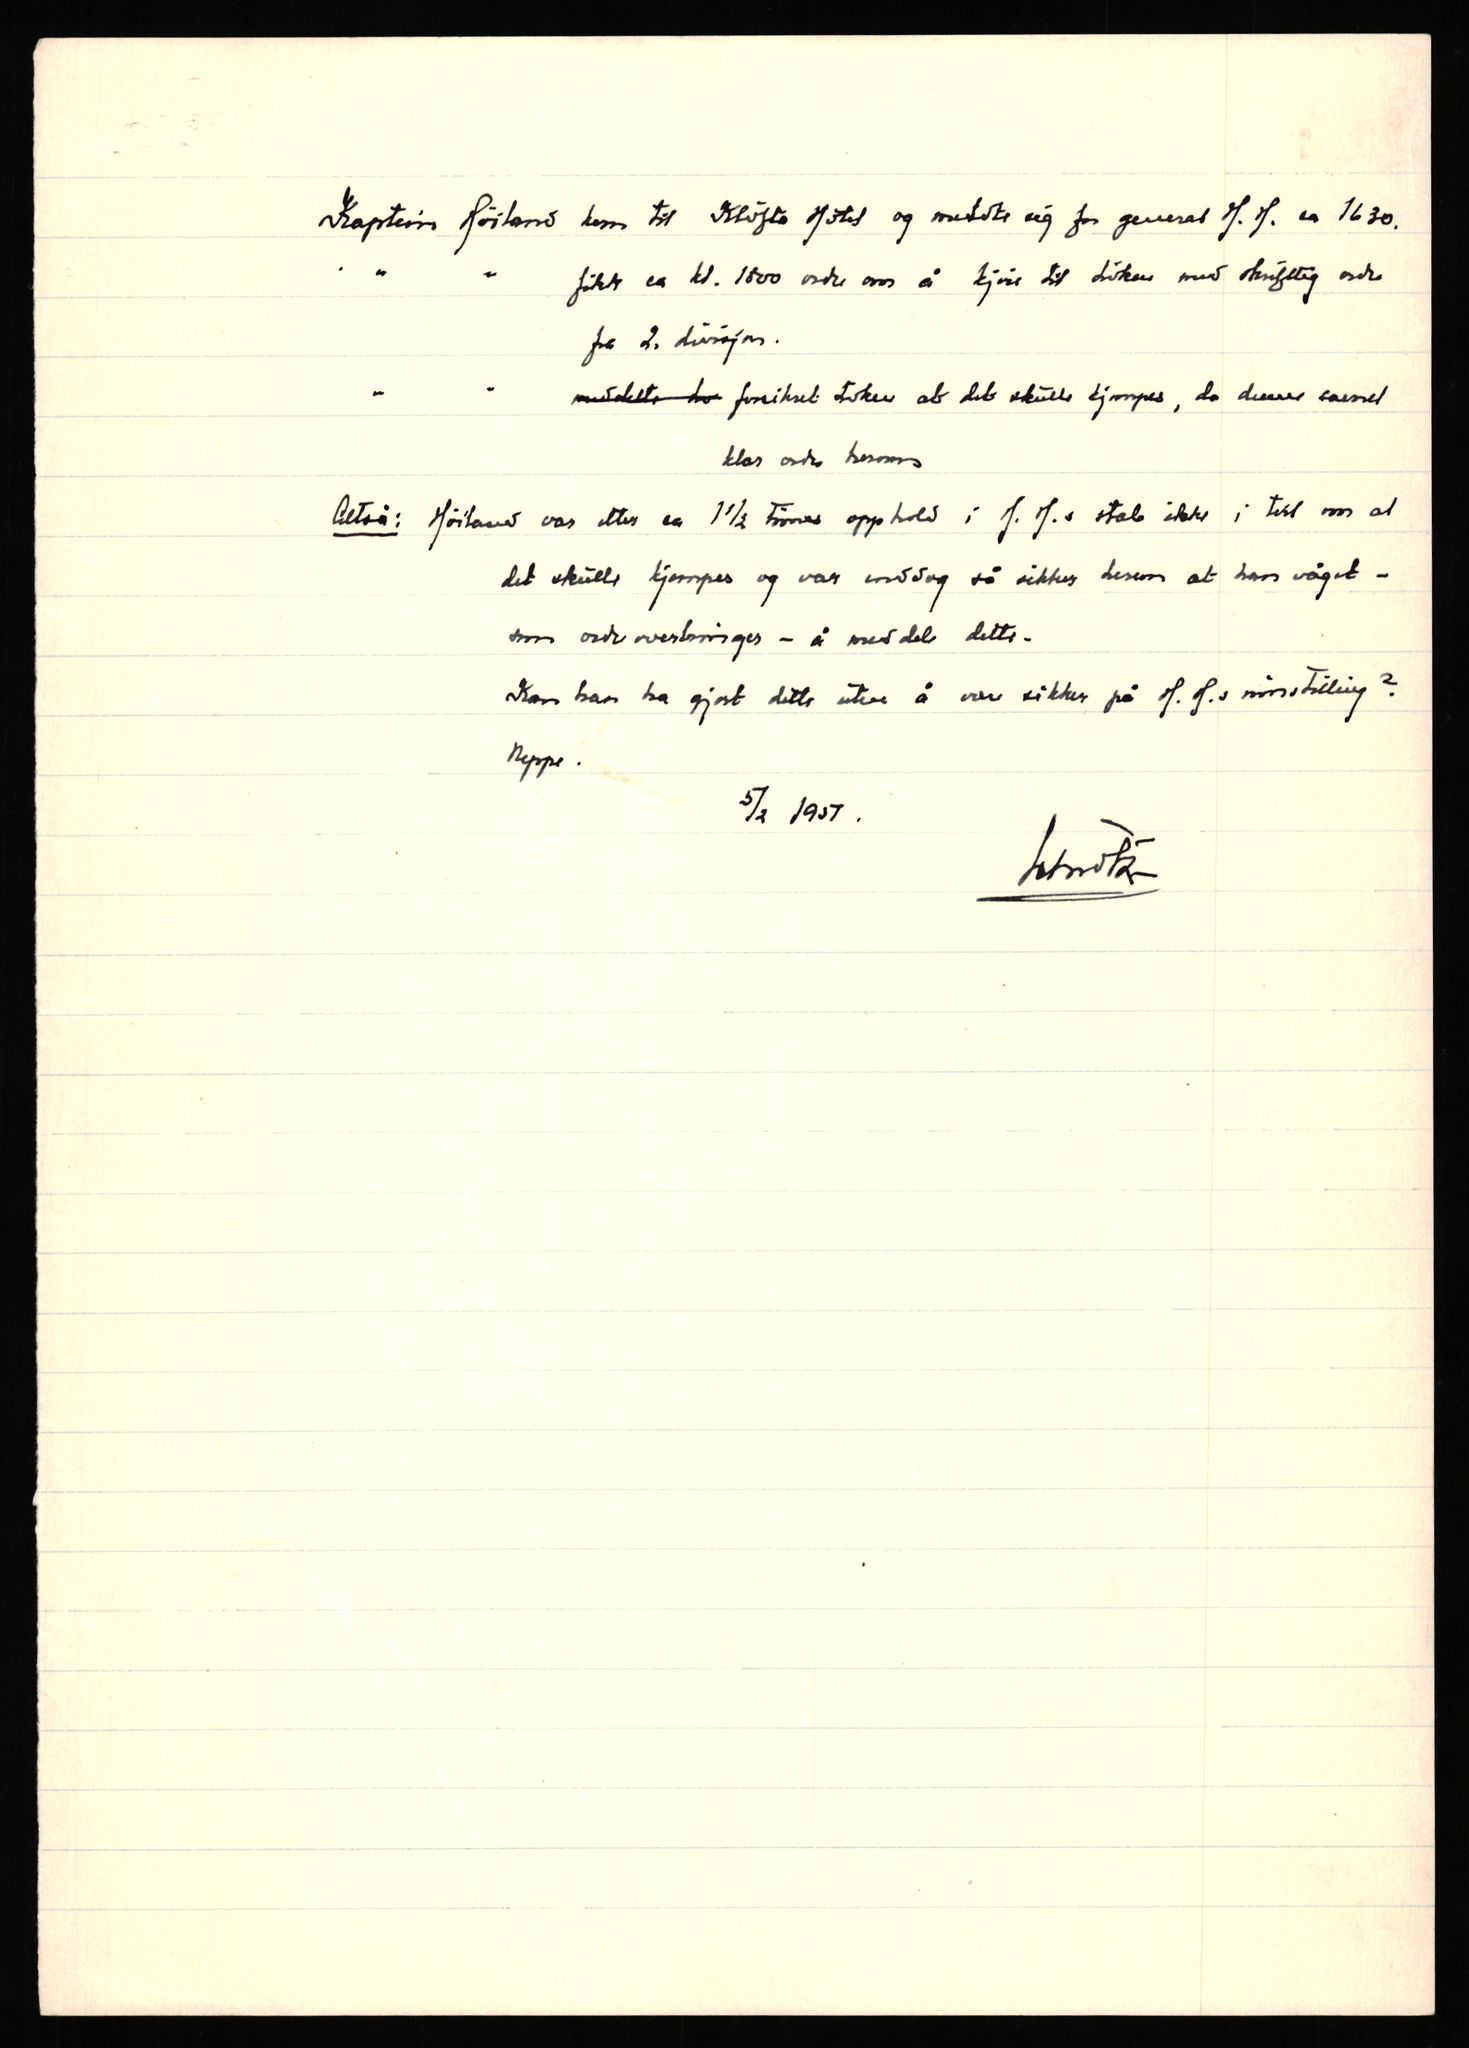 Kaptein Höiland kom til Kløfta Hotel og meldte sig for general H. H. ca 1630.
" " fikk ca kl. 1800 ordre om å kjöre til Löken med skriftlig ordre
fra 2. divisjon.
" " meddelte forsikret Löken at det skulle kjempes, da denne savnet
klar ordre herom
Altså: Höiland var etter ca 1 1/2 times opphold i H. H.s stab ikke i tvil om at
det skulle kjempes og var endog så sikker herom at han våget -
som ordreoverbringer - å meddele dette.
Kan han ha gjort dette uten å være sikker på H. H.s innstilling?
Neppe.
5/2 1951.